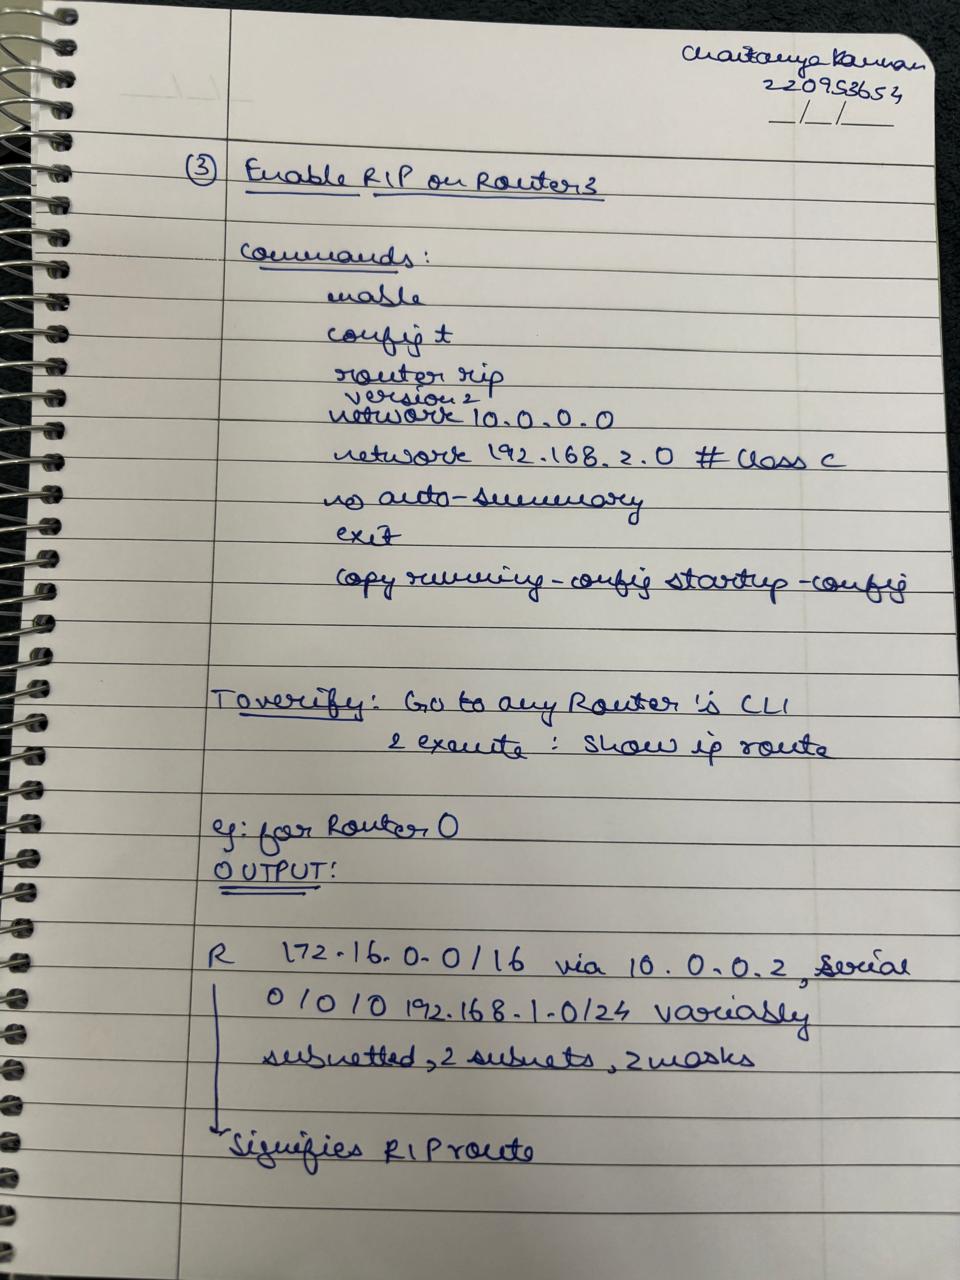 Chaitanya Kannan
220953654
_/_/__
③ Enable RIP on Router3
Commands:
enable
config t
router rip
version 2
network 10.0.0.0
network 192.168.2.0 # Class C
no auto-summary
exit
copy running-config startup-config
To verify: Go to any Router's CLI
& execute : show ip route
eg: for Router 0
OUTPUT:
R 172.16.0.0/16 via 10.0.0.2, serial
0/0/0 192.168.1.0/24 variably
subnetted, 2 subnets, 2 masks
Signifies RIP route